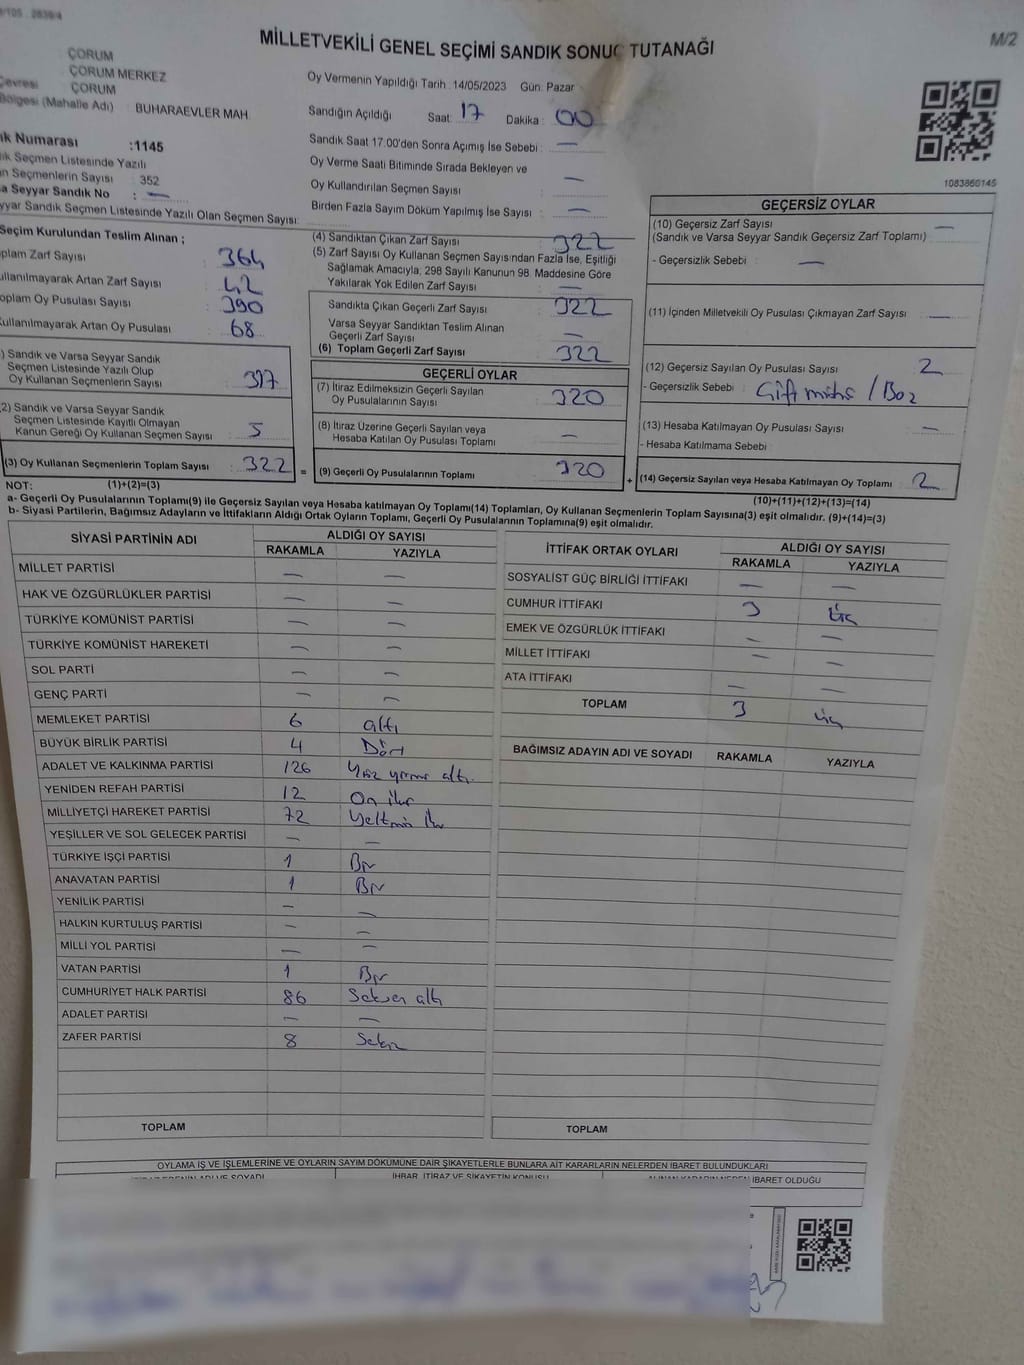 M/2
MİLLETVEKİLİ GENEL SEÇİMİ SANDIK SONUÇ TUTANAĞI
ÇORUM
ÇORUM MERKEZ
Çevresi ÇORUM
Bölgesi (Mahalle Adı) BUHARAEVLER MAH.
Numarası :1145
Seçmen Listesinde Yazılı
Seçmenlerin Sayısı : 352
Seyyar Sandık No : —
Seyyar Sandık Seçmen Listesinde Yazılı Olan Seçmen Sayısı:
Oy Vermenin Yapıldığı Tarih :14/05/2023 Gün: Pazar
Sandığın Açıldığı Saat: 17 Dakika : 00
Sandık Saat 17.00'den Sonra Açımış İse Sebebi : —
Oy Verme Saati Bitiminde Sırada Bekleyen ve
Oy Kullandırılan Seçmen Sayısı : —
Birden Fazla Sayım Döküm Yapılmış İse Sayısı : —
1083860145
Seçim Kurulundan Teslim Alınan ;
Toplam Zarf Sayısı : 364
Kullanılmayarak Artan Zarf Sayısı : 42
Toplam Oy Pusulası Sayısı : 390
Kullanılmayarak Artan Oy Pusulası : 68
Sandık ve Varsa Seyyar Sandık
Seçmen Listesinde Yazılı Olup
Oy Kullanan Seçmenlerin Sayısı : 317
2) Sandık ve Varsa Seyyar Sandık
Seçmen Listesinde Kayıtlı Olmayan
Kanun Gereği Oy Kullanan Seçmen Sayısı : 5
(3) Oy Kullanan Seçmenlerin Toplam Sayısı : 322
(4) Sandıktan Çıkan Zarf Sayısı : 322
(5) Zarf Sayısı Oy Kullanan Seçmen Sayısından Fazla İse, Eşitliği
Sağlamak Amacıyla; 298 Sayılı Kanunun 98. Maddesine Göre
Yakılarak Yok Edilen Zarf Sayısı : —
Sandıkta Çıkan Geçerli Zarf Sayısı : 322
Varsa Seyyar Sandıktan Teslim Alınan
Geçerli Zarf Sayısı : —
(6) Toplam Geçerli Zarf Sayısı : 322
GEÇERLİ OYLAR
(7) İtiraz Edilmeksizin Geçerli Sayılan
Oy Pusulalarının Sayısı : 320
(8) İtiraz Üzerine Geçerli Sayılan veya
Hesaba Katılan Oy Pusulası Toplamı : —
= (9) Geçerli Oy Pusulalarının Toplamı : 320
GEÇERSİZ OYLAR
(10) Geçersiz Zarf Sayısı : —
(Sandık ve Varsa Seyyar Sandık Geçersiz Zarf Toplamı)
- Geçersizlik Sebebi : —
(11) İçinden Milletvekili Oy Pusulası Çıkmayan Zarf Sayısı : —
(12) Geçersiz Sayılan Oy Pusulası Sayısı : 2
- Geçersizlik Sebebi : Çift mühür / Boş
(13) Hesaba Katılmayan Oy Pusulası Sayısı : —
- Hesaba Katılmama Sebebi
+ (14) Geçersiz Sayılan veya Hesaba Katılmayan Oy Toplamı : 2
NOT: (1)+(2)=(3)
(10)+(11)+(12)+(13)=(14)
a- Geçerli Oy Pusulalarının Toplamı(9) ile Geçersiz Sayılan veya Hesaba katılmayan Oy Toplamı(14) Toplamları, Oy Kullanan Seçmenlerin Toplam Sayısına(3) eşit olmalıdır. (9)+(14)=(3)
b- Siyasi Partilerin, Bağımsız Adayların ve İttifakların Aldığı Ortak Oyların Toplamı, Geçerli Oy Pusulalarının Toplamına(9) eşit olmalıdır.
SİYASİ PARTİNİN ADI ALDIĞI OY SAYISI
RAKAMLA YAZIYLA
MİLLET PARTİSİ — —
HAK VE ÖZGÜRLÜKLER PARTİSİ — —
TÜRKİYE KOMÜNİST PARTİSİ — —
TÜRKİYE KOMÜNİST HAREKETİ — —
SOL PARTİ — —
GENÇ PARTİ — —
MEMLEKET PARTİSİ 6 altı
BÜYÜK BİRLİK PARTİSİ 4 Dört
ADALET VE KALKINMA PARTİSİ 126 Yüz yirmi altı
YENİDEN REFAH PARTİSİ 12 On iki
MİLLİYETÇİ HAREKET PARTİSİ 72 Yetmiş iki
YEŞİLLER VE SOL GELECEK PARTİSİ — —
TÜRKİYE İŞÇİ PARTİSİ 1 Bir
ANAVATAN PARTİSİ 1 Bir
YENİLİK PARTİSİ — —
HALKIN KURTULUŞ PARTİSİ — —
MİLLİ YOL PARTİSİ — —
VATAN PARTİSİ 1 Bir
CUMHURİYET HALK PARTİSİ 86 Seksen altı
ADALET PARTİSİ — —
ZAFER PARTİSİ 8 Sekiz
TOPLAM
İTTİFAK ORTAK OYLARI ALDIĞI OY SAYISI
RAKAMLA YAZIYLA
SOSYALİST GÜÇ BİRLİĞİ İTTİFAKI — —
CUMHUR İTTİFAKI 3 Üç
EMEK VE ÖZGÜRLÜK İTTİFAKI — —
MİLLET İTTİFAKI — —
ATA İTTİFAKI — —
TOPLAM 3 üç
BAĞIMSIZ ADAYIN ADI VE SOYADI RAKAMLA YAZIYLA
TOPLAM
OYLAMA İŞ VE İŞLEMLERİNE VE OYLARIN SAYIM DÖKÜMÜNE DAİR ŞİKAYETLERLE BUNLARA AİT KARARLARIN NELERDEN İBARET BULUNDUKLARI
İHBAR, İTİRAZ VE ŞİKAYETİN KONUSU
İBARET OLDUĞU